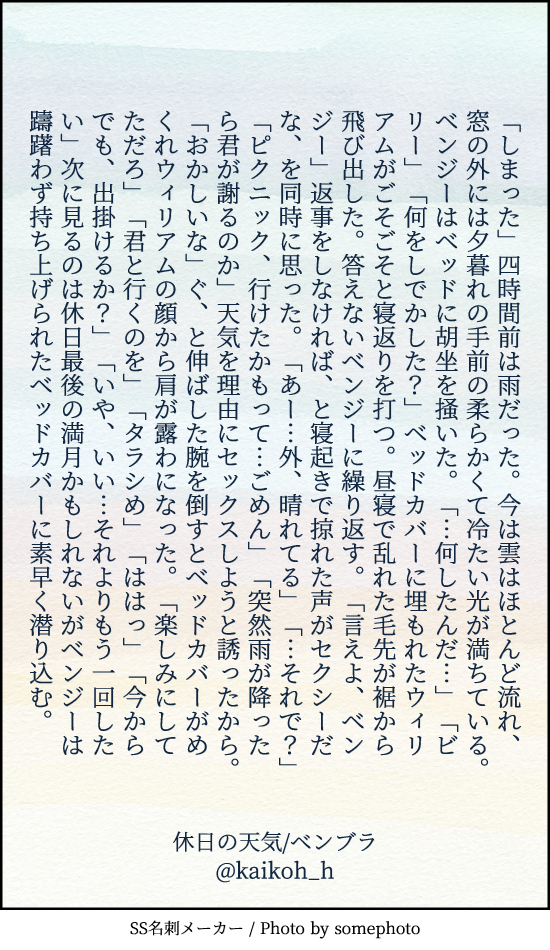 「しまった」四時間前は雨だった。今は雲はほとんど流れ、
窓の外には夕暮れの手前の柔らかくて冷たい光が満ちている。
ベンジーはベッドに胡坐を掻いた。「…何したんだ…」「ビ
リー」「何をしでかした?」ベッドカバーに埋もれたウィリ
アムがごそごそと寝返りを打つ。昼寝で乱れた毛先が裾から
飛び出した。答えないベンジーに繰り返す。「言えよ、ベン
ジー」返事をしなければ、と寝起きで掠れた声がセクシーだ
な、を同時に思った。「あー…外、晴れてる」「…それで?」
「ピクニック、行けたかもって…ごめん」「突然雨が降った
ら君が謝るのか」天気を理由にセックスしようと誘ったから。
「おかしいな」ぐ、と伸ばした腕を倒すとベッドカバーがめ
くれウィリアムの顔から肩が露わになった。「楽しみにして
ただろ」「君と行くのを」「タラシめ」「ははっ」「今から
でも、出掛けるか?」「いや、いい…それよりもう一回した
い」次に見るのは休日最後の満月かもしれないがベンジーは
躊躇わず持ち上げられたベッドカバーに素早く潜り込む。
休日の天気/ベンブラ
@kaikoh_h
SS名刺メーカー / Photo by somephoto